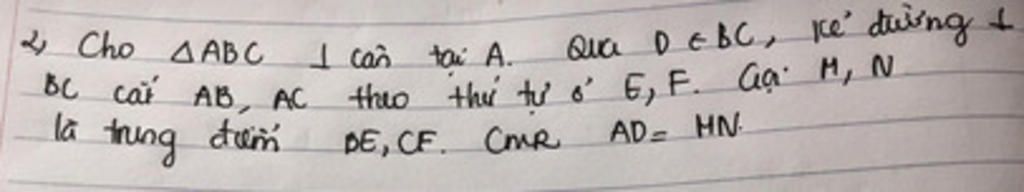 2, Cho △ABC ⊥ cân tại A. Qua D ∈ BC, kẻ đường ⊥
BC cắt AB, AC theo thứ tự ở E, F. Gọi M, N
là trung điểm BE, CF. CMR AD = MN.